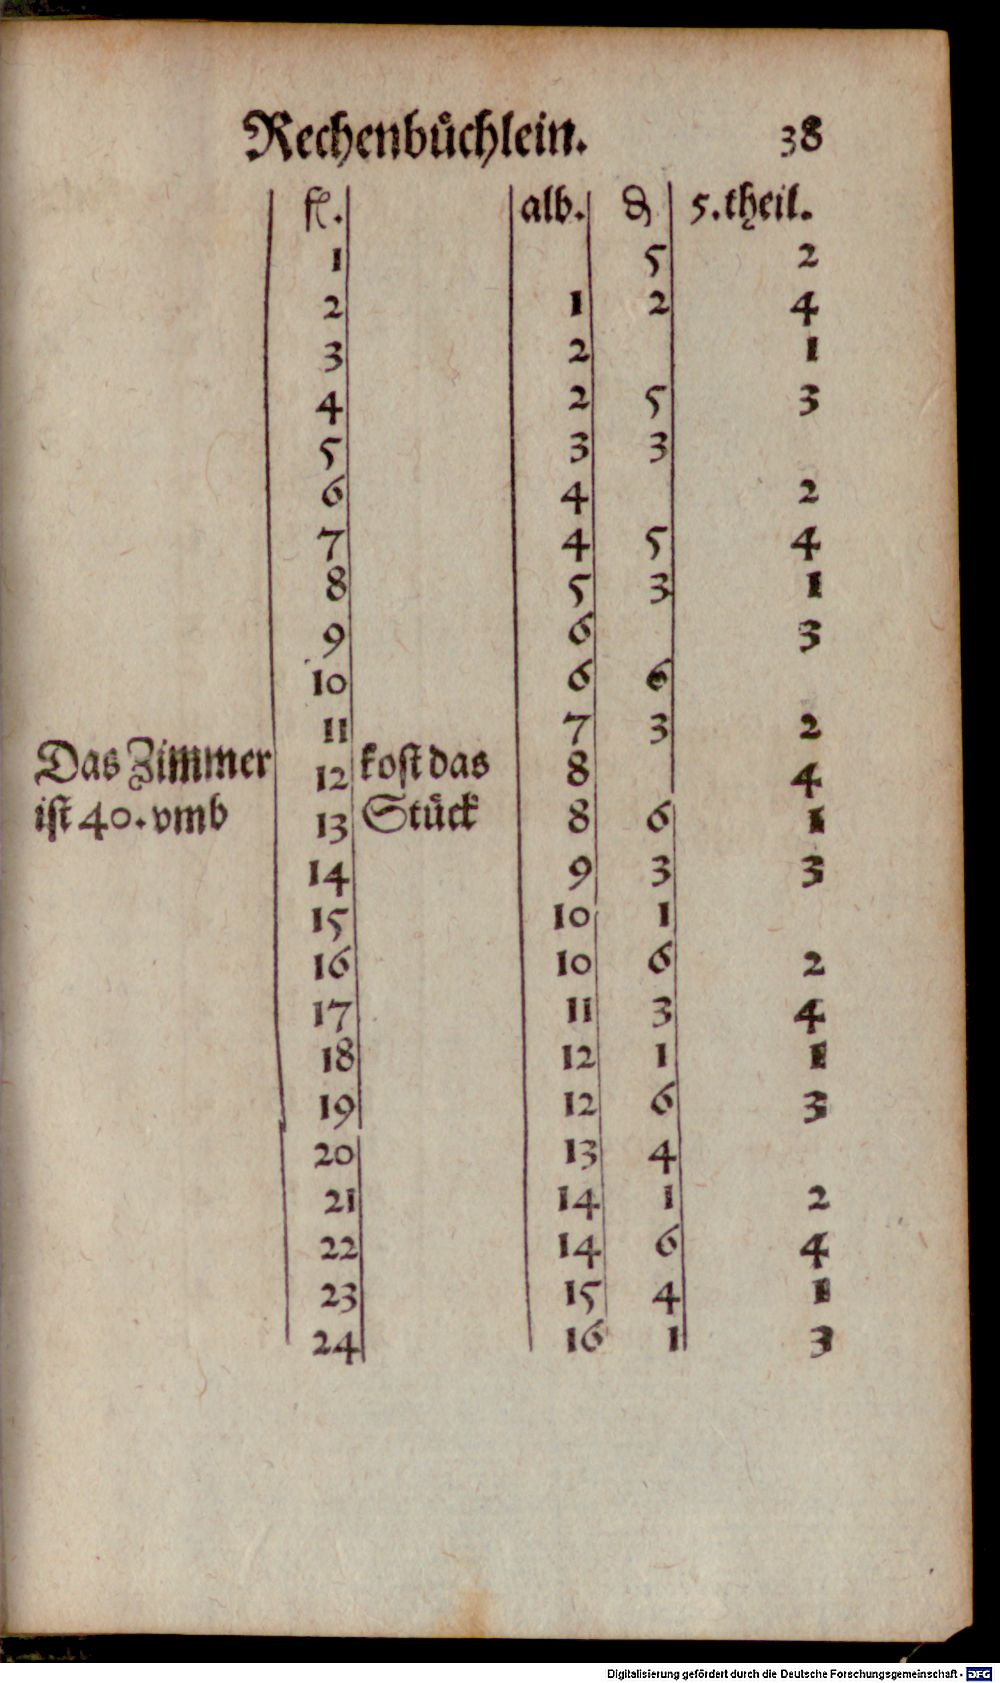 Rechenbůchlein. 38
fl. alb. ₰ 5.theil.
1 5 2
2 1 2 4
3 2 1
4 2 5 3
5 3 3
6 4 2
7 4 5 4
8 5 3 1
9 6 3
10 6 6
11 7 3 2
Das Zimmer 12 kost das 8 4
ist 40. vmb 13 Stůck 8 6 1
14 9 3 3
15 10 1
16 10 6 2
17 11 3 4
18 12 1 1
19 12 6 3
20 13 4
21 14 1 2
22 14 6 4
23 15 4 1
24 16 1 3
Digitalisierung gefördert durch die Deutsche Forschungsgemeinschaft - DFG